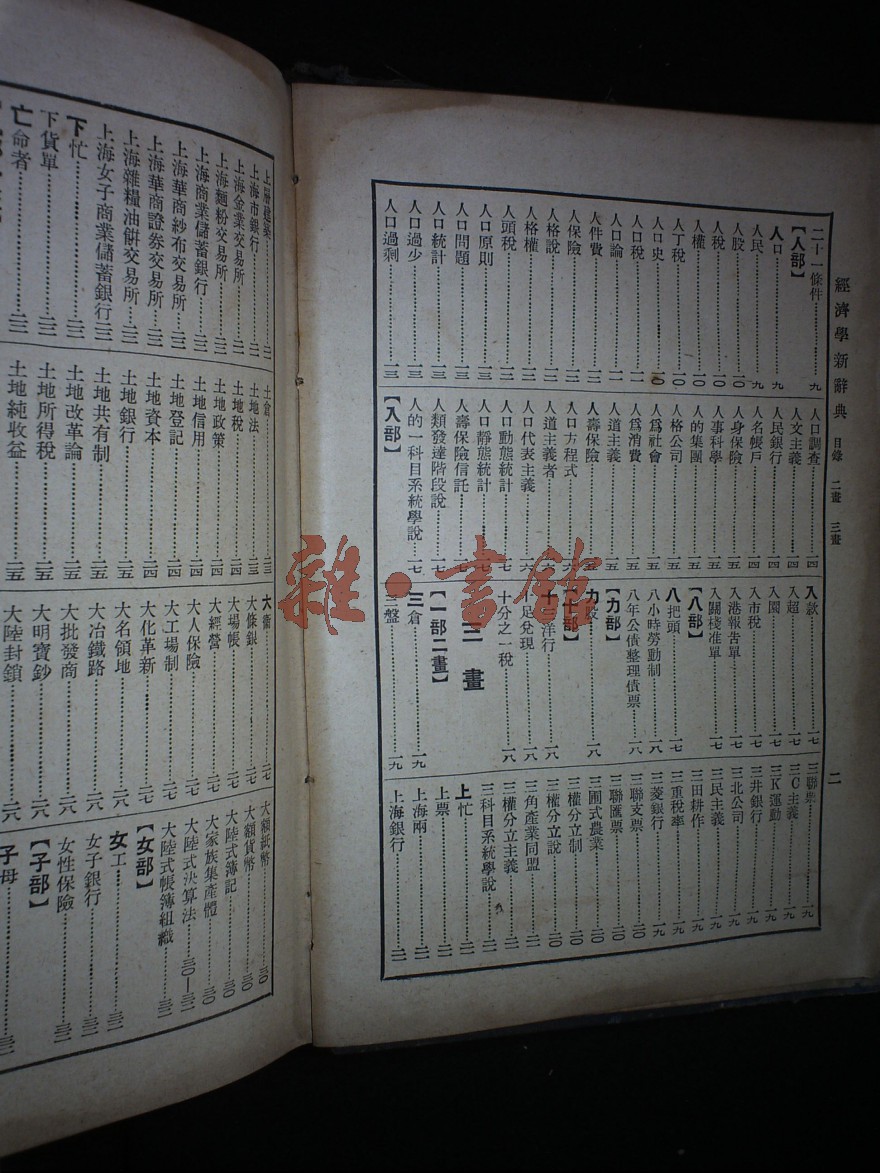 經濟學新辭典 目錄 二畫 三畫
二
二十一條件……九
【人部】
人口……九
人民……九
人股……一〇
人稅……一〇
人權……一〇
人丁稅……一〇
人口史……一〇
人口稅……一一
人口論……一一
人件費……一二
人保險……一二
人格說……一二
人格權……一二
人頭稅……一二
人口原則……一三
人口問題……一三
人口統計……一三
人口過少……一三
人口過剩……一三
人口調查……一四
人文主義……一四
人民銀行……一四
人名帳戶……一四
人身保險……一五
人事科學……一五
人的集團……一五
人格公司……一五
人爲社會……一五
人爲消費……一五
人道主義……一五
人壽保險……一五
人口方程式……一六
人道主義者……一六
人口代表主義……一六
人口動態統計……一七
人口靜態統計……一七
人壽保險信託……一七
人類發達階段說……一七
人的一科目系統學說……一七
【入部】
入款……一七
入超……一七
入閣……一七
入市稅……一七
入港報告單……一七
入關棧准單……一七
【八部】
八把頭……一七
八小時勞動制……一八
八年公債整理債票……一八
【力部】
力役……一八
【十部】
十三洋行……一八
十足兌現……一八
十分之一稅……一八
三畫
【一部二畫】
三倉……一九
三盤……一九
三聯票……一九
三C主義……一九
三K運動……一九
三井銀行……一九
三北公司……一九
三民主義……一九
三田耕作……一九
三重稅率……一九
三菱銀行……一九
三聯支票……二〇
三聯匯票……二〇
三圃式農業……二〇
三權分立制……二〇
三權分立說……二〇
三角產業同盟……二一
三權分立主義……二一
三科目系統學說……二一
上忙……二一
上票……二一
上海兩……二一
上海銀行……二一
上層建築
上海市銀行
上海金業交易所
上海麵粉交易所
上海商業儲蓄銀行
上海華商紗布交易所
上海華商證券交易所
上海雜糧油餅交易所
上海女子商業儲蓄銀行
下忙
下貨單
亡命者
土倉……二三
土地法……二三
土地稅……二四
土地政策……二四
土地信用……二四
土地登記……二四
土地資本……二四
土地銀行……二五
土地共有制……二五
土地改革論……二五
土地所得稅……二五
土地純收益……二五
大衞……二七
大條銀……二七
大場帳……二七
大經營……二七
大人保險……二七
大工場制……二七
大化革新……二七
大名領地……二八
大冶鐵路……二八
大批發商……二八
大明寶鈔……二八
大陸封鎖……二八
大額紙幣……三〇
大額貨幣……三〇
大陸式簿記……三〇
大家族集產體……三〇
大陸式決算法……三〇—三一
大陸式帳簿組織
【女部】
女工
女子銀行
女性保險
【子部】
子母
雜·書館